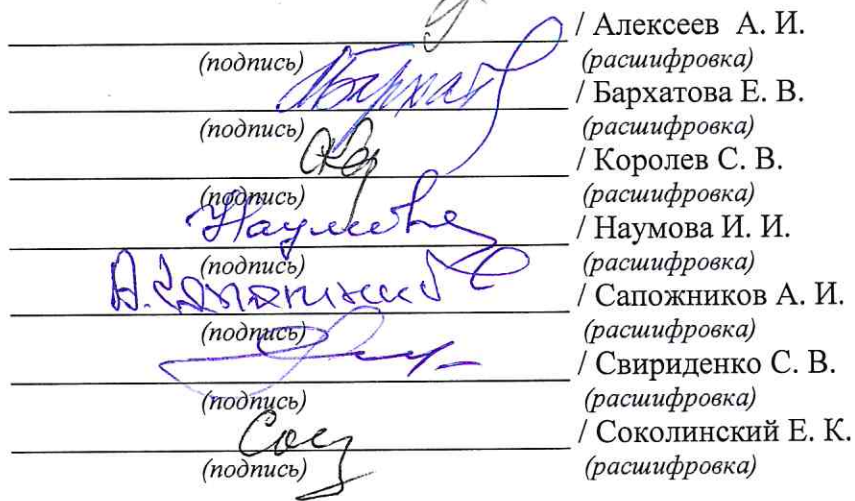 / Алексеев А. И.
(подпись) (расшифровка)
Бархат / Бархатова Е. В.
(подпись) (расшифровка)
/ Королев С. В.
(подпись) (расшифровка)
Наумова / Наумова И. И.
(подпись) (расшифровка)
/ Сапожников А. И.
(подпись) (расшифровка)
/ Свириденко С. В.
(подпись) (расшифровка)
/ Соколинский Е. К.
(подпись) (расшифровка)